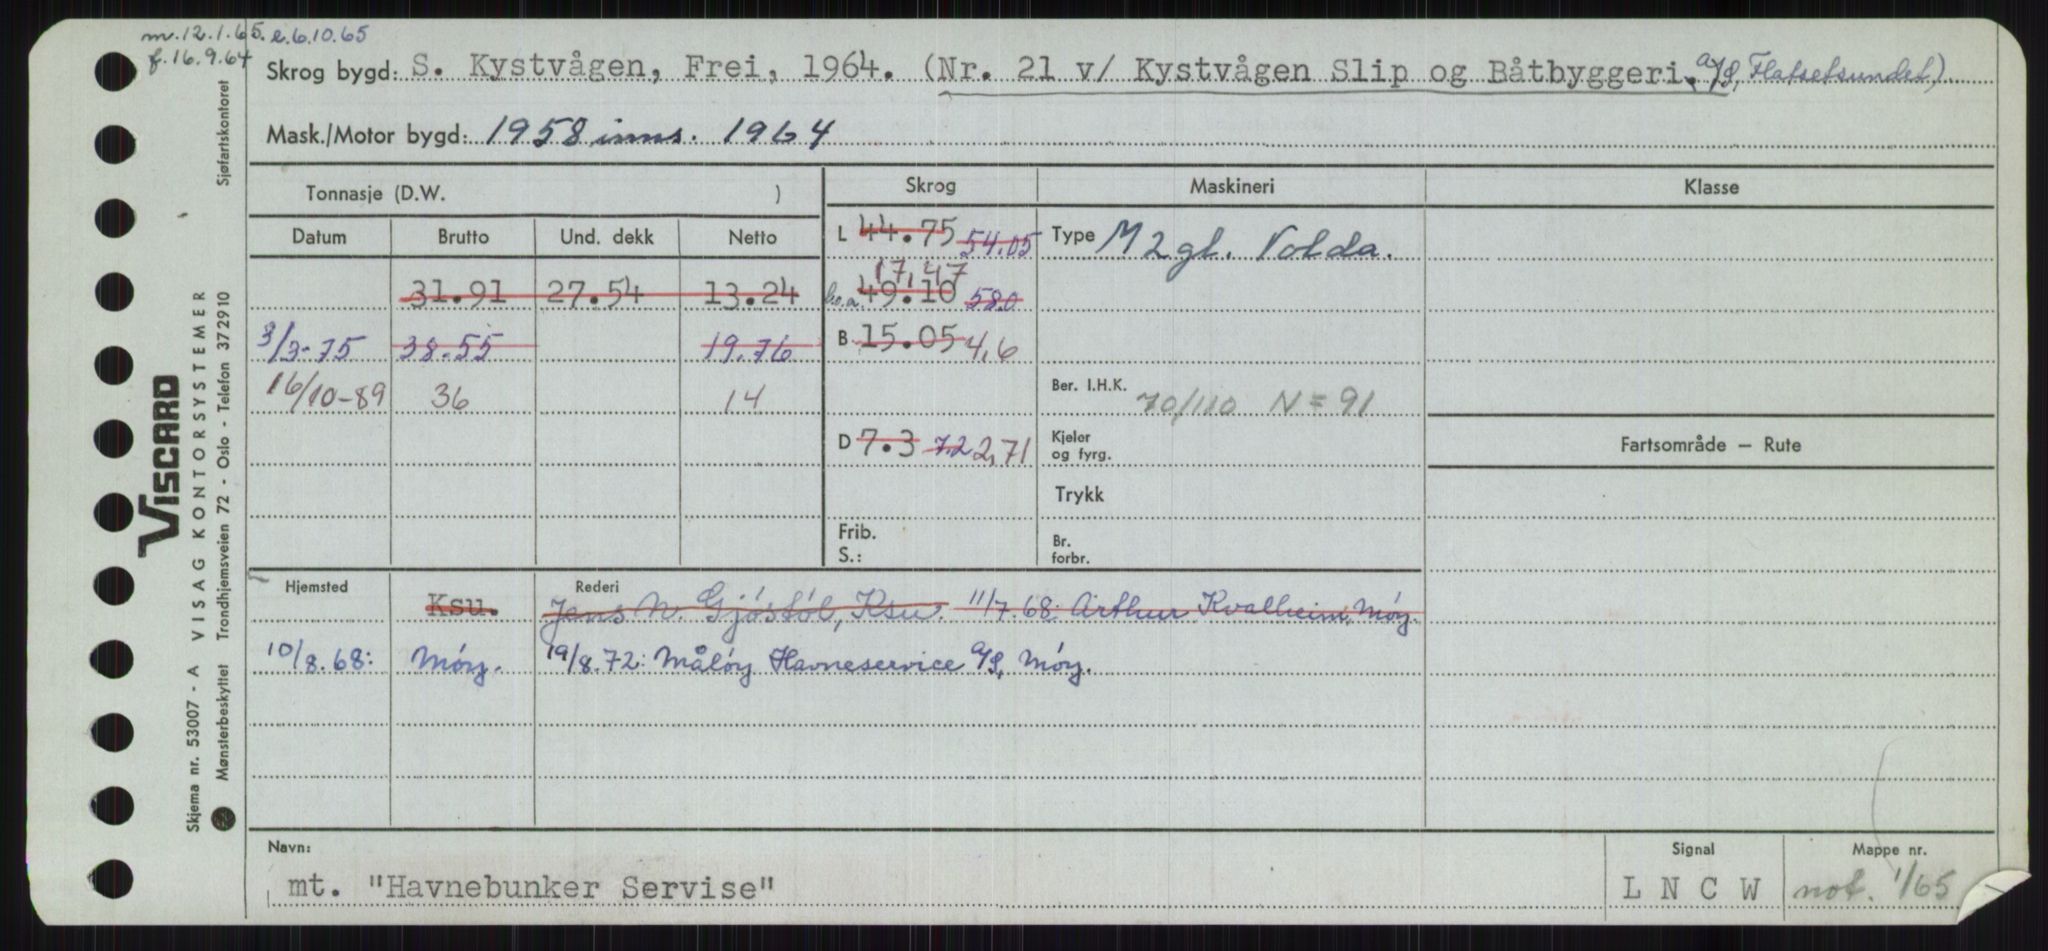 m. 12.1.65. e. 6.10.65
f. 16.9.64
Skrog bygd: S. Kystvågen, Frei, 1964. (Nr. 21 v/ Kystvågen Slip og Båtbyggeri, A/S, Flatsetsundet)
Mask./Motor bygd: 1958 inns. 1964
Tonnasje (D.W. )
Skrog
Maskineri
Klasse
Datum Brutto Und. dekk Netto
L 44.75 54.05
Type M 2 gl. Volda.
17,47
31.91 27.54 13.24
b.o.a. 49.10 58.0
3/3-75 38.55 19.76
B 15.05 4,6
16/10-89 36 14
Ber. I.H.K. 70/110 N = 91
D 7.3 7.2 2,71
Kjeler
og fyrg.
Fartsområde — Rute
Trykk
Frib.
S.:
Br.
forbr.
Hjemsted
Rederi
Ksu. Jens N. Gjøstøl, Ksu. 11/7.68: Arthur Kvalheim, Møy.
10/8.68: Møy. 19/8.72: Måløy Havneservice A/S, Møy.
Navn:
mt. "Havnebunker Servise"
Signal
L N C W
Mappe nr.
not. 1/65
Sjøfartskontoret
VISCARD
Skjema nr. 53007 - A VISAG KONTORSYSTEMER
Mønsterbeskyttet Trondhjemsveien 72 - Oslo - Telefon 372910